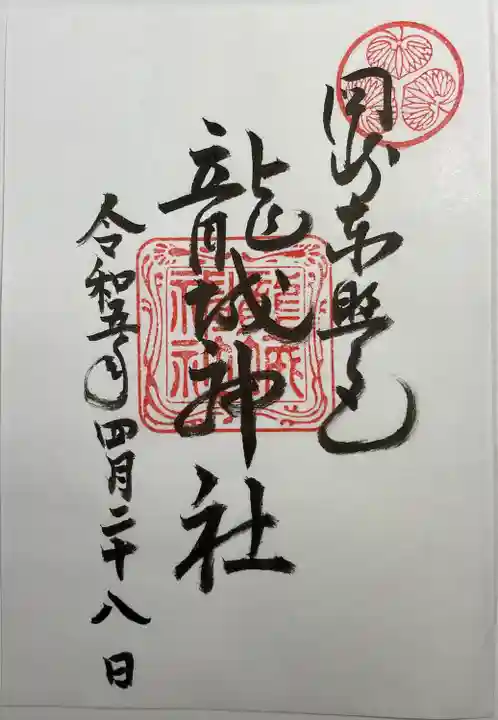 岡崎東照宮
龍城神社
令和五年四月二十八日
龍城神社